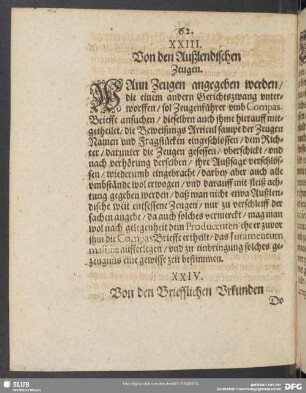 62.
XXIII.
Von den Außlendischen
Zeugen.
WAnn Zeugen angegeben werden/
die einem andern Gerichtszwang vnter-
worffen/ sol Zeugenführer vmb Compas-
Brieffe ansuchen/ dieselben auch ihme hierauff mit-
getheilet/ die Beweisungs Articul sampt der Zeugen
Namen vnd Fragstücken eingeschlossen/ dem Rich-
ter/ darunter die Zeugen gesessen/ vberschickt/ vnd
nach verhörung derselben/ ihre Außsage verschlos-
sen/ wiederumb eingebracht/ darbey aber auch alle
vmbstände wol erwogen/ vnd darauff mit fleiß ach-
tung gegeben werden/ daß man nicht etwa Außlen-
dische weit entsessene Zeugen/ nur zu verschleiff der
sachen angebe/ da auch solches vermerckt/ mag man
wol nach gelegenheit dem Producenten/ ehe er zuvor
ihm die Compas Brieffe ertheilt/ das Juramentum
malitiæ aufferlegen/ vnd zu einbringung solches ge-
zeugnus eine gewisse zeit bestimmen.
XXIV.
Von den Brieflichen Vrkunden
Do
SLUB
Wir führen Wissen.
DFG